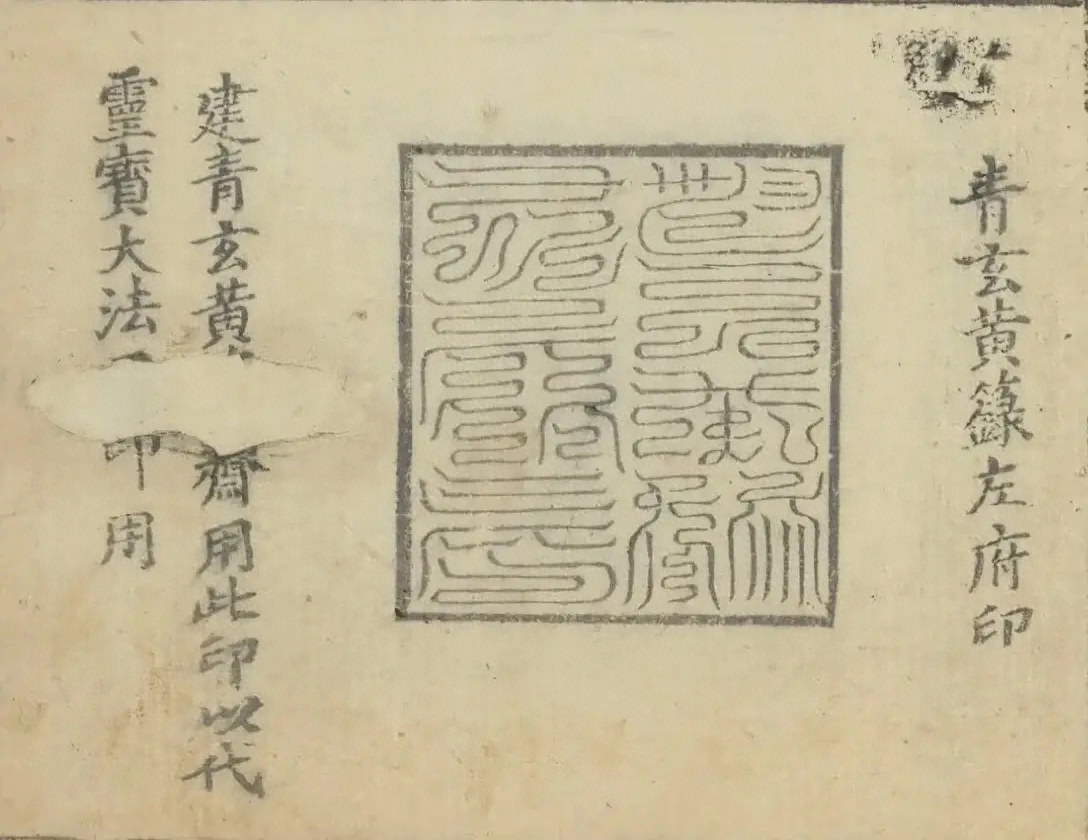 青玄黃籙左府印
建青玄黃齋用此印以代
靈寶大法印用